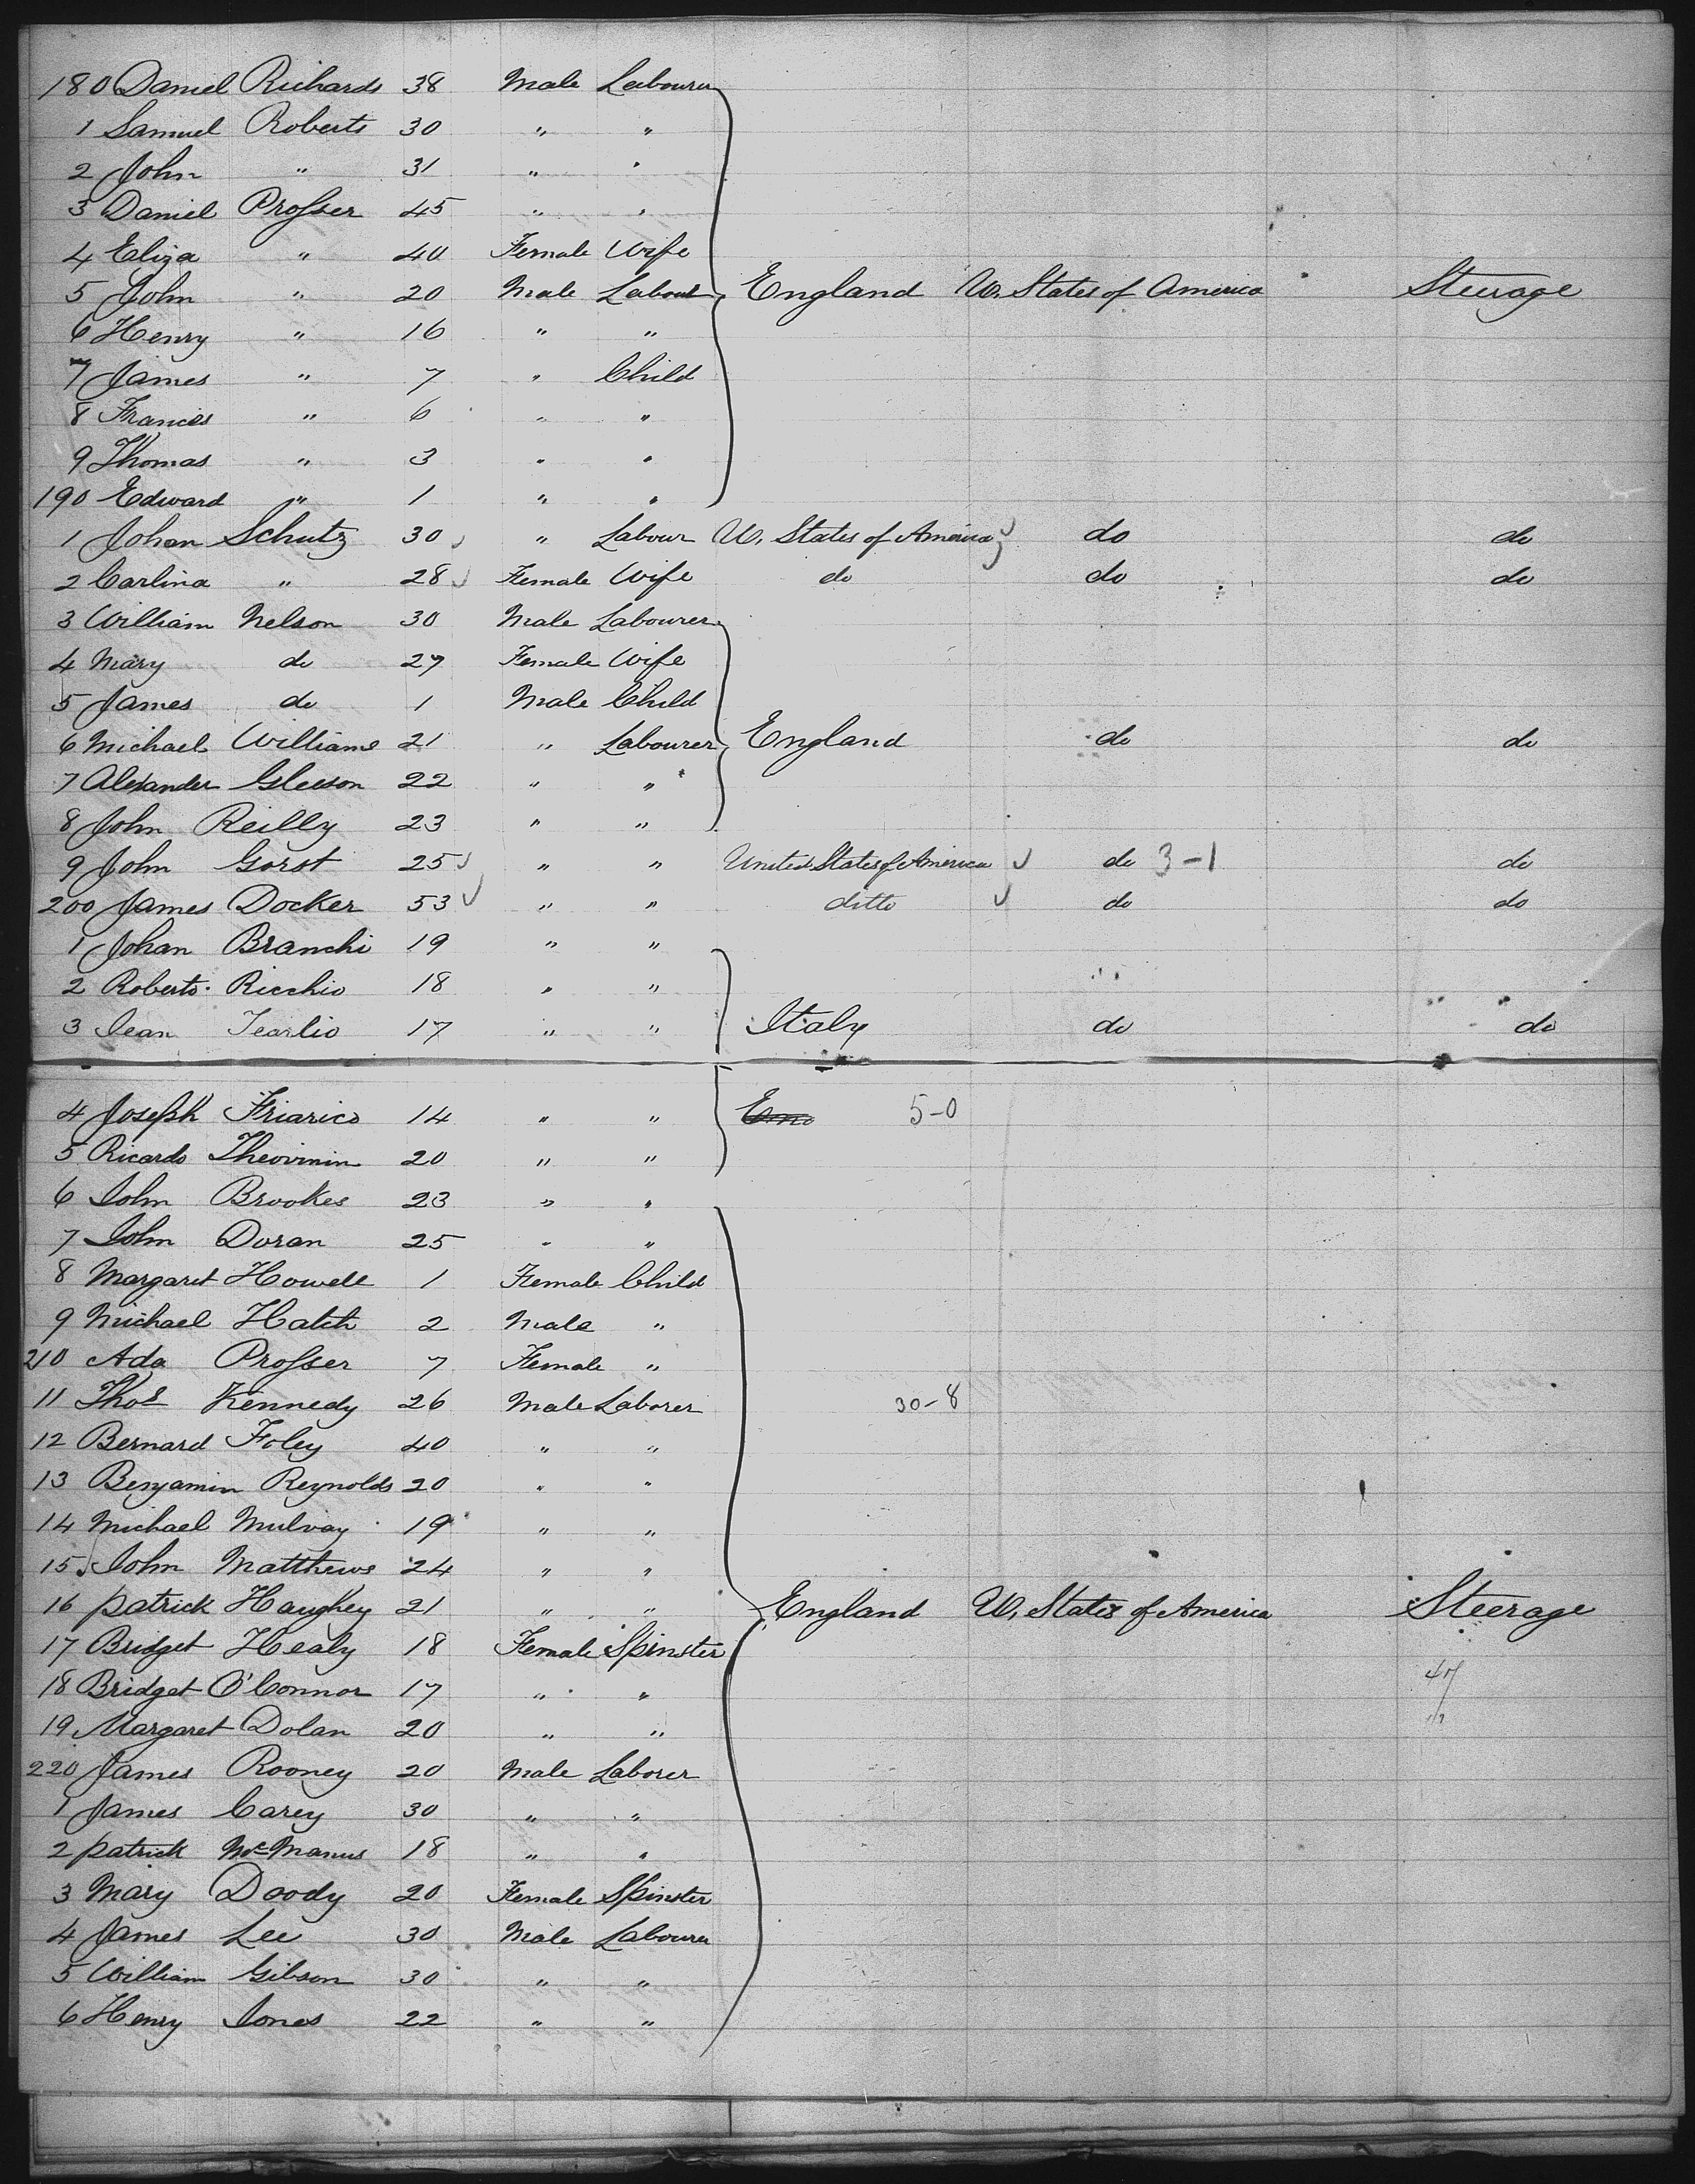 180 Daniel Richards 38 Male Labourer
1 Samuel Roberts 30 " "
2 John " 31 " "
3 Daniel Prosser 45 " "
4 Eliza " 40 Female Wife
5 John " 20 Male Labour England U. States of America Steerage
6 Henry " 16 " "
7 James " 7 " Child
8 Francis " 6 " "
9 Thomas " 3 " "
190 Edward " 1 " "
1 Johan Schutz 30 " Labour U. States of America do do
2 Carlina " 28 Female Wife do do do
3 William Nelson 30 Male Labourer
4 Mary do 27 Female Wife
5 James do 1 Male Child
6 Michael Williams 21 " Labourer England do do
7 Alexander Gleeson 22 " "
8 John Reilly 23 " "
9 John Gorst 25 " " United States of America do 3-1 do
200 James Docker 53 " " ditto do do
1 Johan Branchi 19 " "
2 Roberto Ricchio 18 " "
3 Jean Tearlio 17 " " Italy do do
4 Joseph Friarico 14 " " 5-0
5 Ricardo 20 " "
6 John Brookes 23 " "
7 John Doran 25 " "
8 Margaret Howell 1 Female Child
9 Michael Hatch 2 Male "
210 Ada Prosser 7 Female "
11 Thos Kennedy 26 Male Laborer 30-8
12 Bernard Foley 40 " "
13 Benjamin Reynolds 20 " "
14 Michael Mulvay 19 " "
15 John Matthews 24 " "
16 Patrick Haughey 21 " " England U. States of America Steerage
17 Bridget Healy 18 Female Spinster
18 Bridget O'Connor 17 " "
19 Margaret Dolan 20 " "
220 James Rooney 20 Male Laborer
1 James Carey 30 " "
2 Patrick McManus 18 " "
3 Mary Doody 20 Female Spinster
4 James Lee 30 Male Labourer
5 William Gibson 30 " "
6 Henry Jones 22 " "